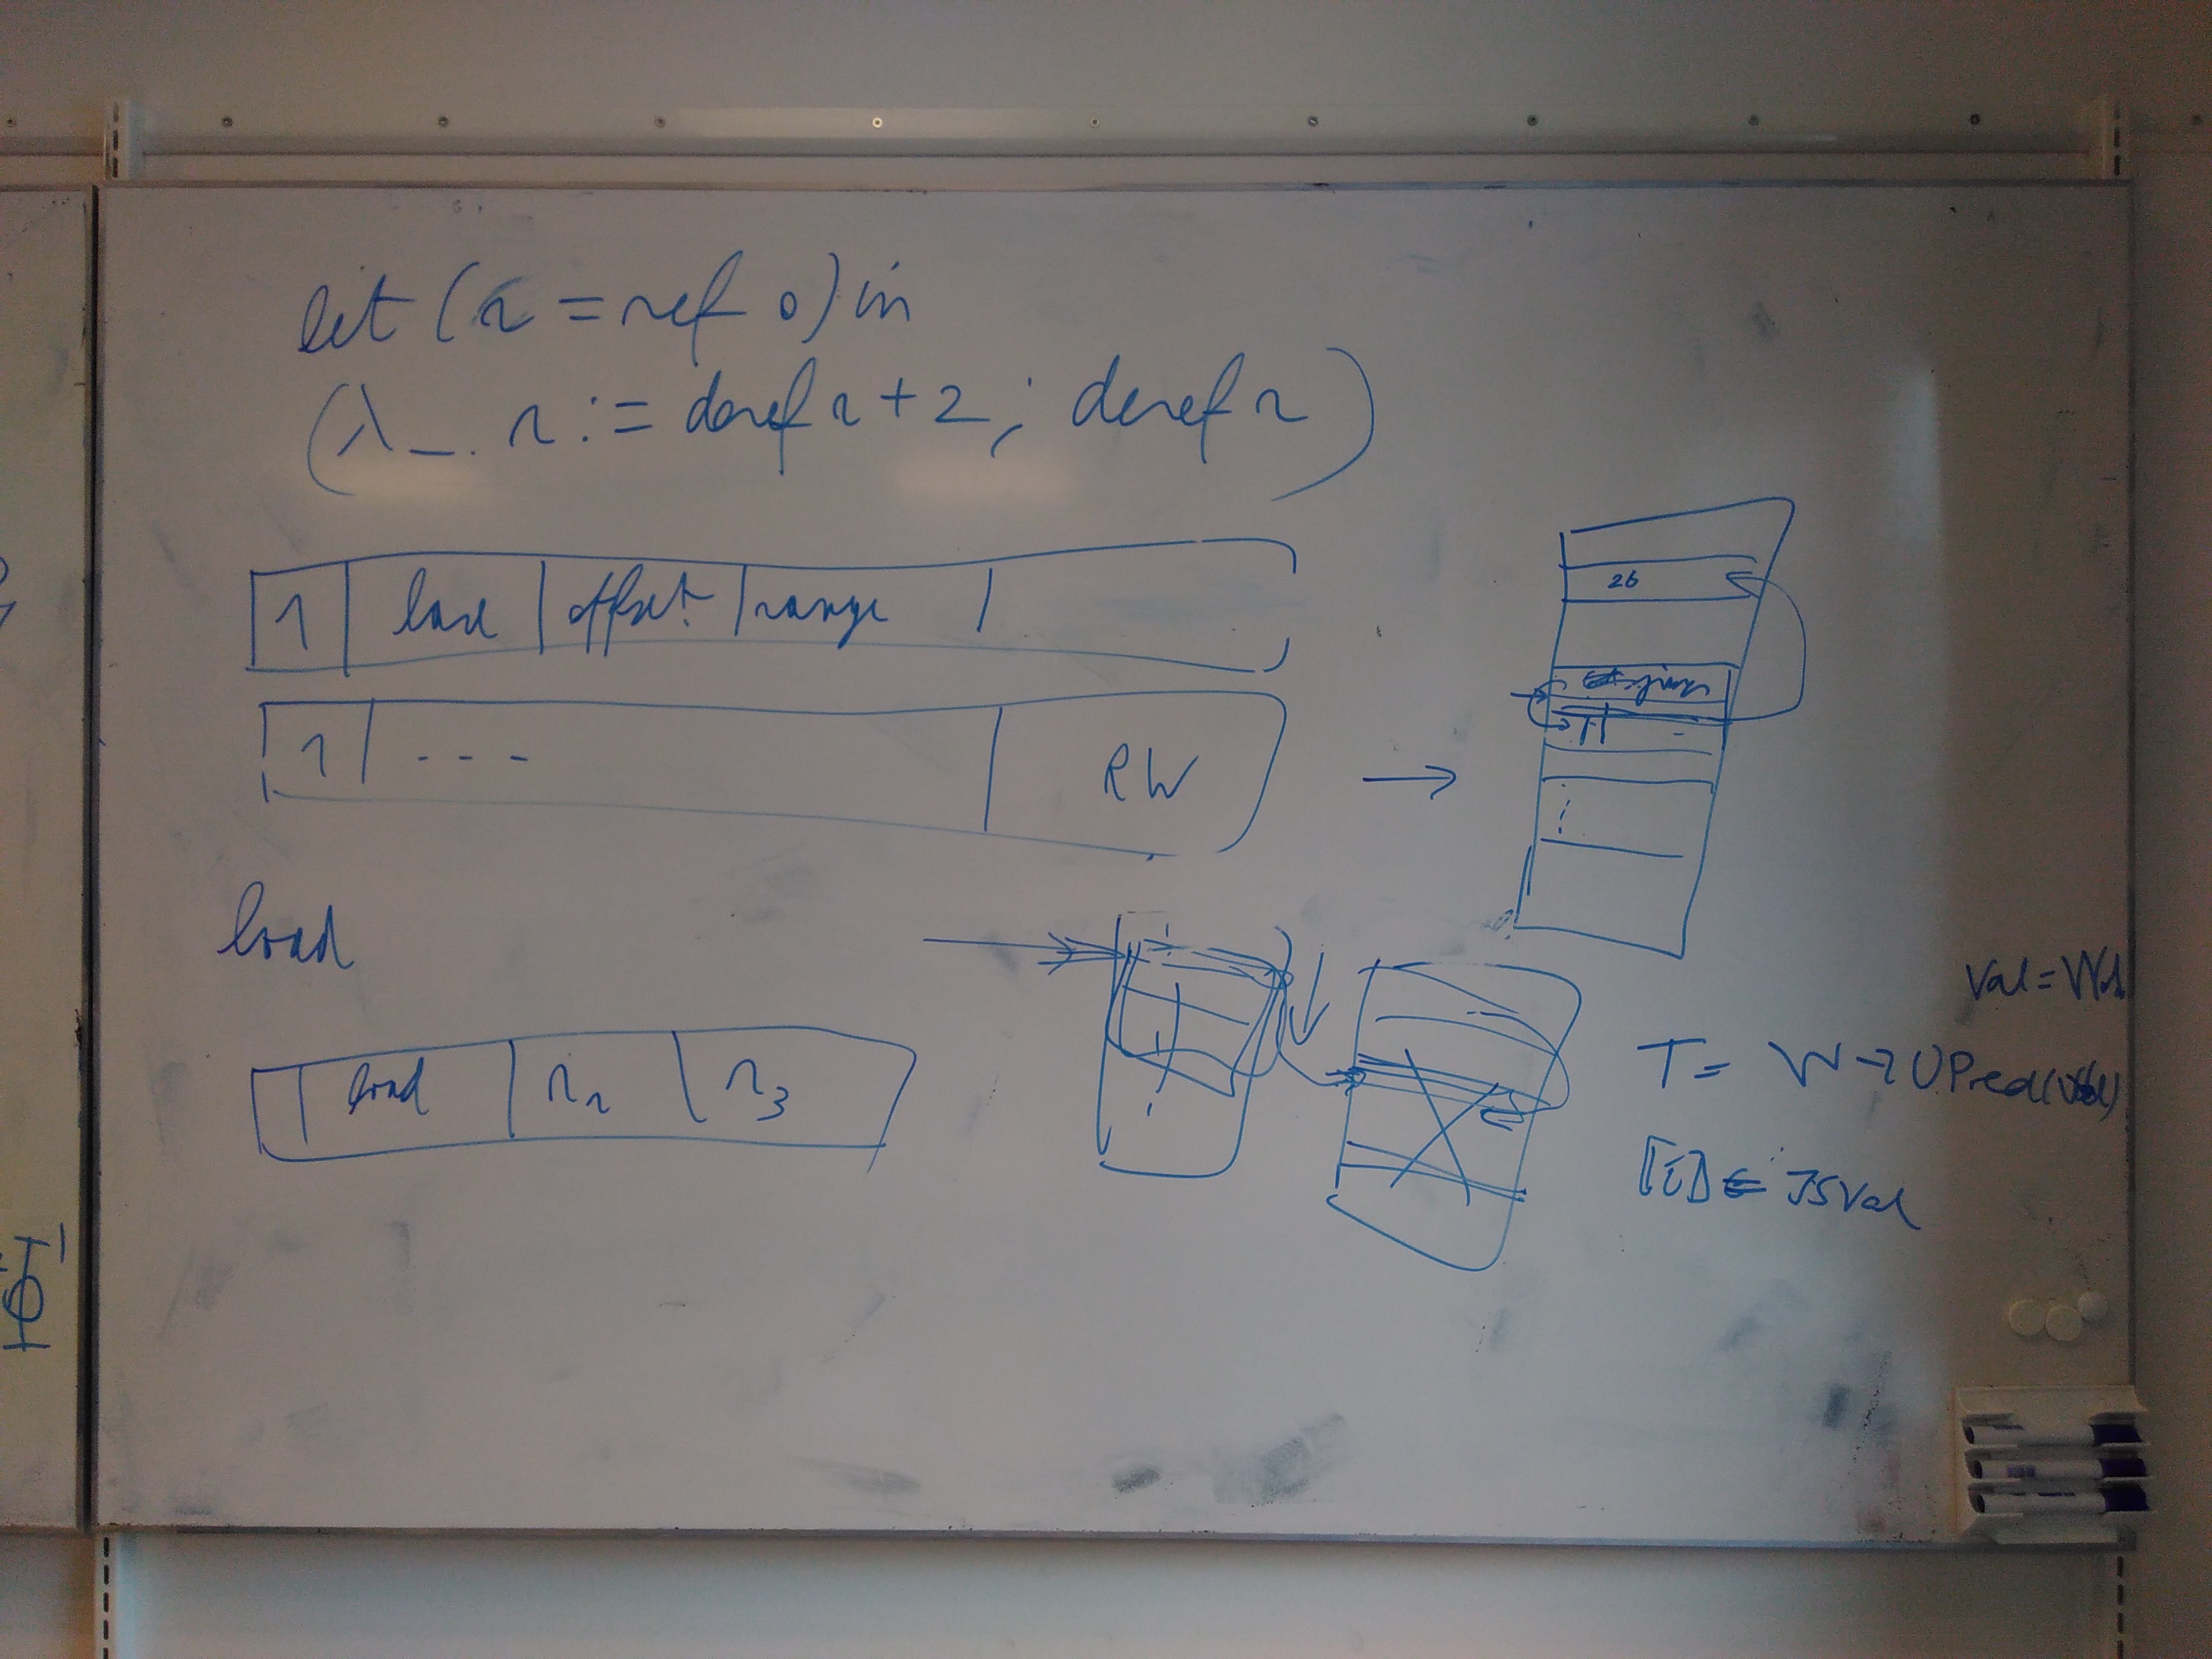 let (r = ref 0) in
(λ_. r := deref r + 2; deref r)
1 base offset range
1 --- RW
→
26
load
load r₂ r₃
Val =
T = W → UPred(Val)
JSVal
Φ